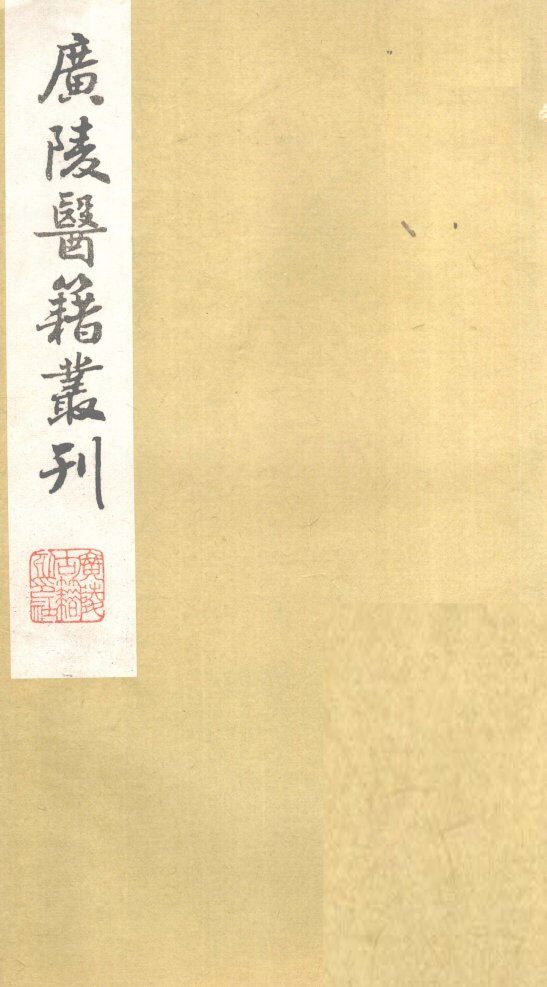 廣陵醫籍叢刊
廣陵
古籍
刻印社